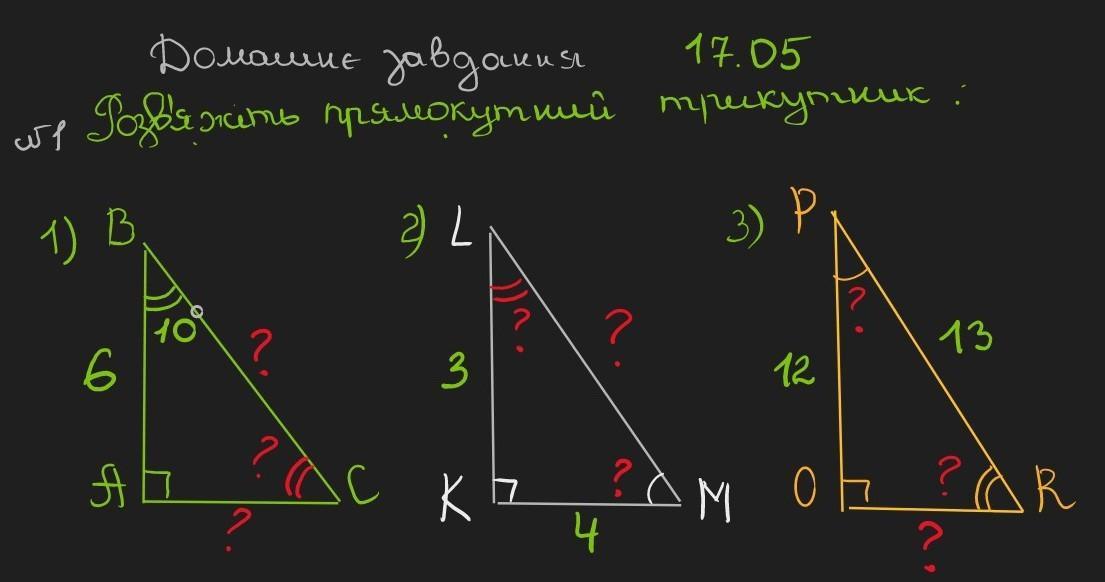 Домашнє завдання 17.05
№1 Розв'яжіть прямокутний трикутник:
1) B 2) L 3) P
10°
6 ? ? ? 3 ? 12 13
A ? C K ? M O ? R
? 4 ?